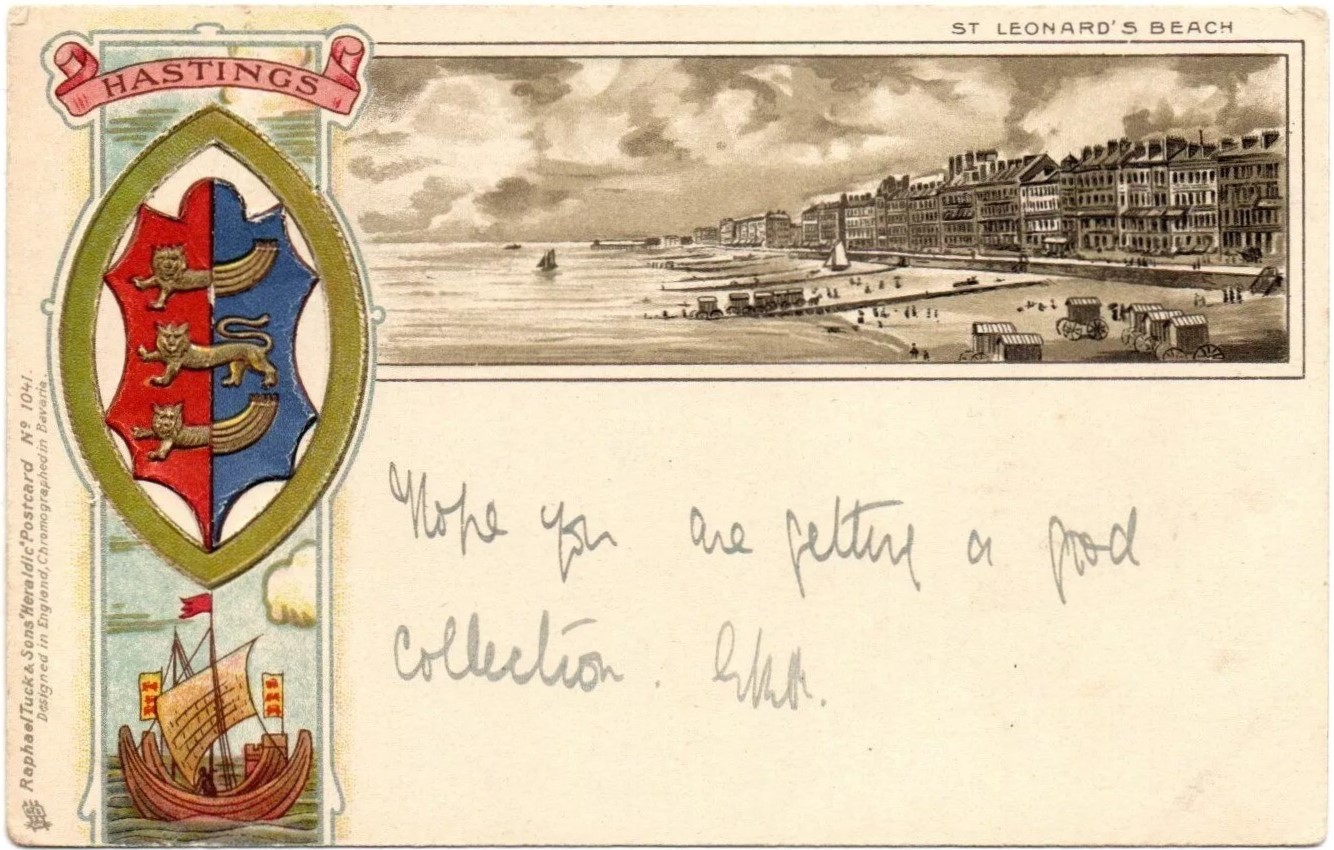 ST LEONARD'S BEACH
HASTINGS
Raphael Tuck & Sons' "Heraldic" Postcard Nº 1041.
Designed in England, Chromographed in Bavaria.
Hope you are getting a good
collection.